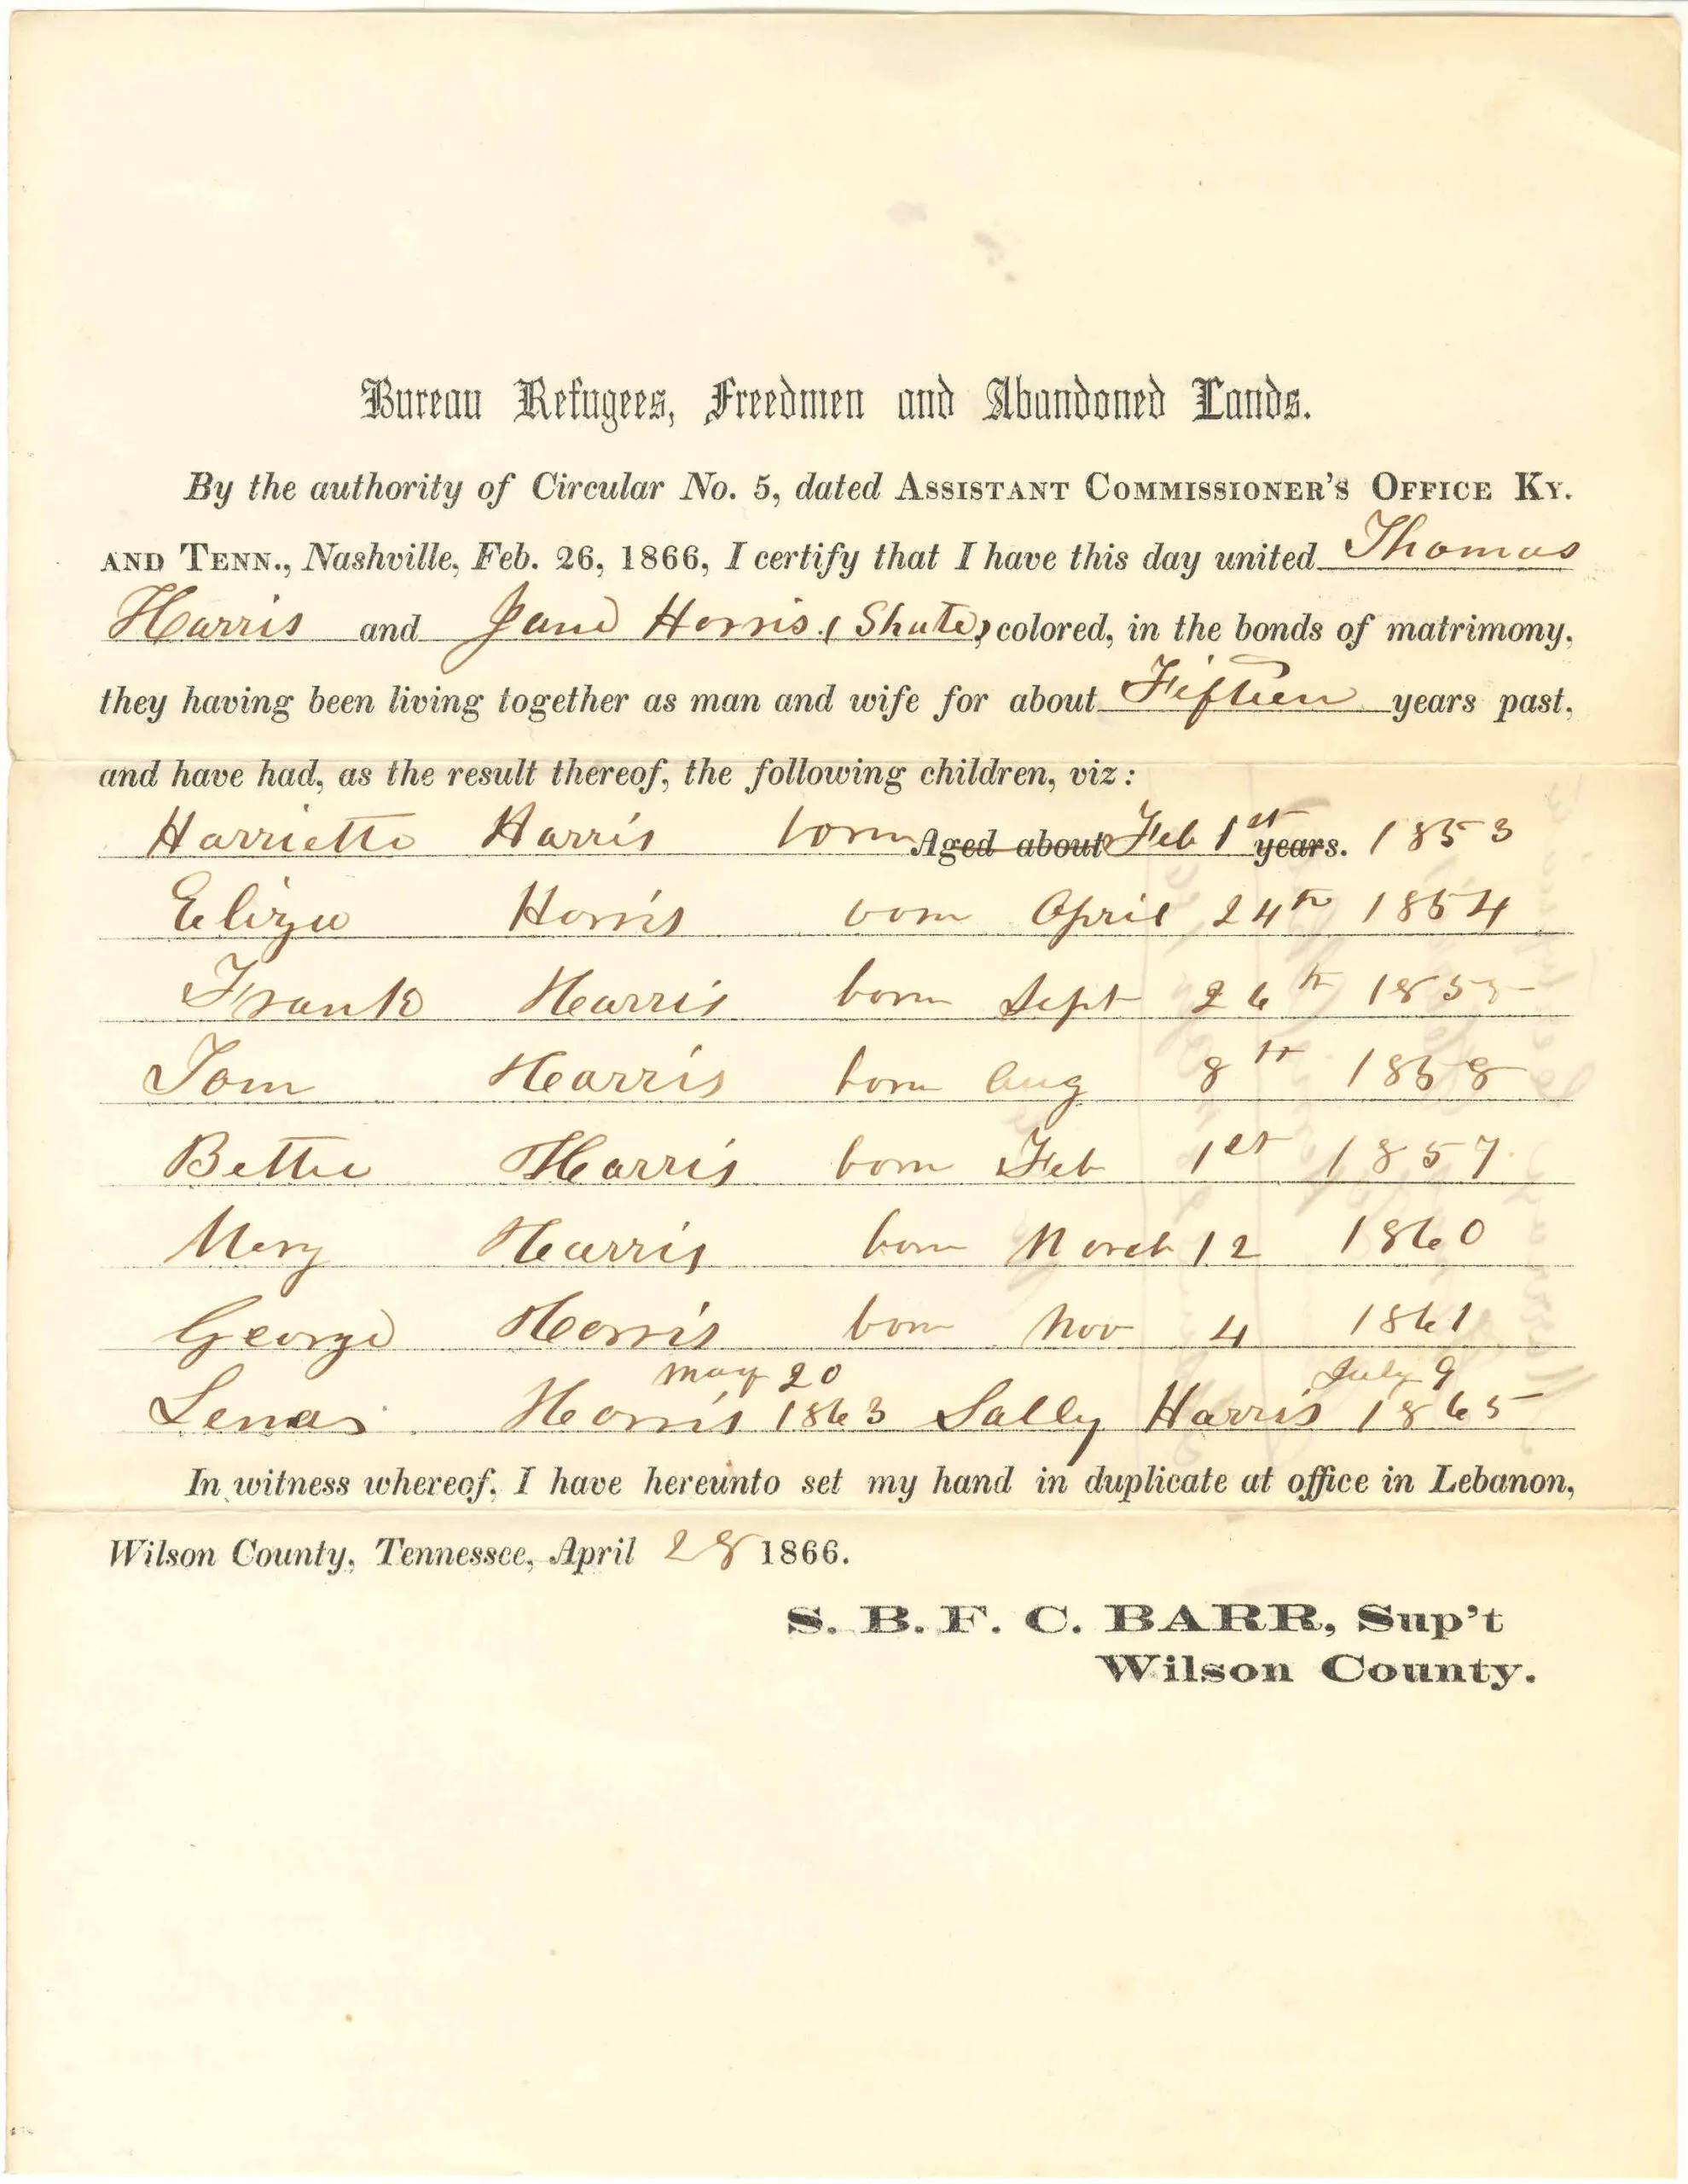 Bureau Refugees, Freedmen and Abandoned Lands.
By the authority of Circular No. 5, dated ASSISTANT COMMISSIONER'S OFFICE KY.
AND TENN., Nashville, Feb. 26, 1866, I certify that I have this day united Thomas
Harris and Jane Harris (Shute) colored, in the bonds of matrimony,
they having been living together as man and wife for about Fifteen years past,
and have had, as the result thereof, the following children, viz:
Harriette Harris born Aged about Feb 1st years. 1853
Eliza Harris born April 24th 1854
Frank Harris born Sept 26th 1855
Tom Harris born Aug 8th 1858
Bettie Harris born Feb 1st 1857
Mary Harris born March 12 1860
George Harris born Nov 4 1861
may 20 July 9
Harris 1863 Sally Harris 1865
In witness whereof, I have hereunto set my hand in duplicate at office in Lebanon,
Wilson County, Tennessee, April 28 1866.
S. B. F. C. BARR, Sup't
Wilson County.